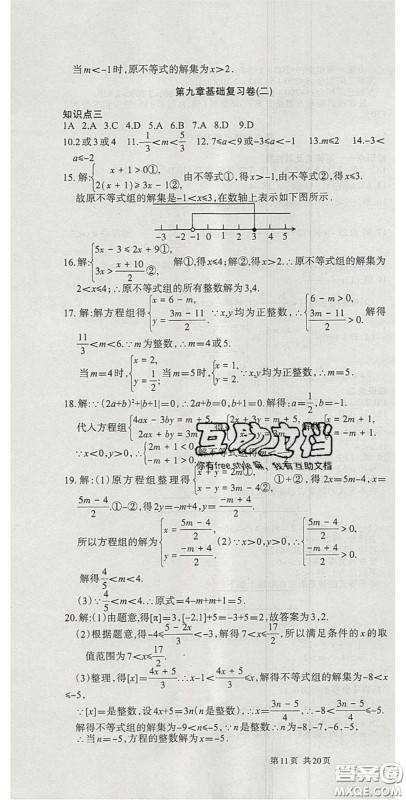 当m<-1时,原不等式的解集为x>2.
第九章基础复习卷(二)
知识点三
1A 2.A 3.C 4.D 5.A 6.D 7.A 8.A 9.D
10.2或3或4 11.1/3<m<5/3 12.7≤a<9或-3≤a<-1 13.m≤2 14.-3<
a≤-2
15.解:{x+1>0①, 2(x+1)≥3x-1②, 由不等式①,得x>-1,由不等式②,得x≤3.
故原不等式组的解集是-1<x≤3,在数轴上表示如下图所示.
-3 -2 -1 0 1 2 3 4 5
16.解:{5x-3≤2x+9①, 3x>(x+10)/2② 解①,得x≤4;解②,得x>2.∴原不等式组的解集为
2<x≤4;∴原不等式组的所有整数解为3,4.
17.解:解方程组得{x=6-m, y=(3m-11)/2. ∵x,y均为正整数,∴{6-m>0, (3m-11)/2>0. 解得
11/3<m<6.∵m为整数,∴m=4或5.
当m=4时,{x=2, y=1/2; 当m=5时,{x=1, y=2. ∵x,y均为正整数,∴m=5.
18.解:∵(2a+b)²+|b+1|=0,∴{2a+b=0, b+1=0. 解得:a=1/2,b=-1.
代入方程组{4ax-3by=m+5, 2ay+
x=2m+1,
∵x<0,y>0,∴
解不等式组得m
互助文档
你有free style 嘛,我有互助文档
19.解:(1)原方程组整理得{
x+y=2m①, ①+②,得2x=5m-4,x=
(5m-4)/2.①-②,得2y=-m+4,y=(-m+4)/2.
所以方程组的解为{x=(5m-4)/2, y=(-m+4)/2. (2)∵x>0,y>0,∴{(5m-4)/2>0, (-m+4)/2>0.
解得4/5<m<4.
(3)∵4/5<m<4.∴原式=4-m+m+1=5.
20.解:(1)由题意,得[π]=3,[-2.1]+5=-3+5=2,故答案为3,2.
(2)根据题意,得-4≤(5-2x)/3<-3,解得7<x≤17/2,所以满足条件的x的取
值范围为7<x≤17/2.
(3)整理,得[x]=(4x+5)/3.∴x-1<(4x+5)/3≤x,解得不等式组的解集为-8<x
≤-5,
∵[x]=是整数,设4x+5=3n(n是整数),∴x=(3n-5)/4.∴-8<(3n-5)/4≤-5.
解得不等式组的解集为-9<n≤-5,∵n是整数,∴n为-8,-7,-6,-5,
∴当n=-5,方程的整数解为x=-5.
第11页 共20页
答案圈
MXQE.COM